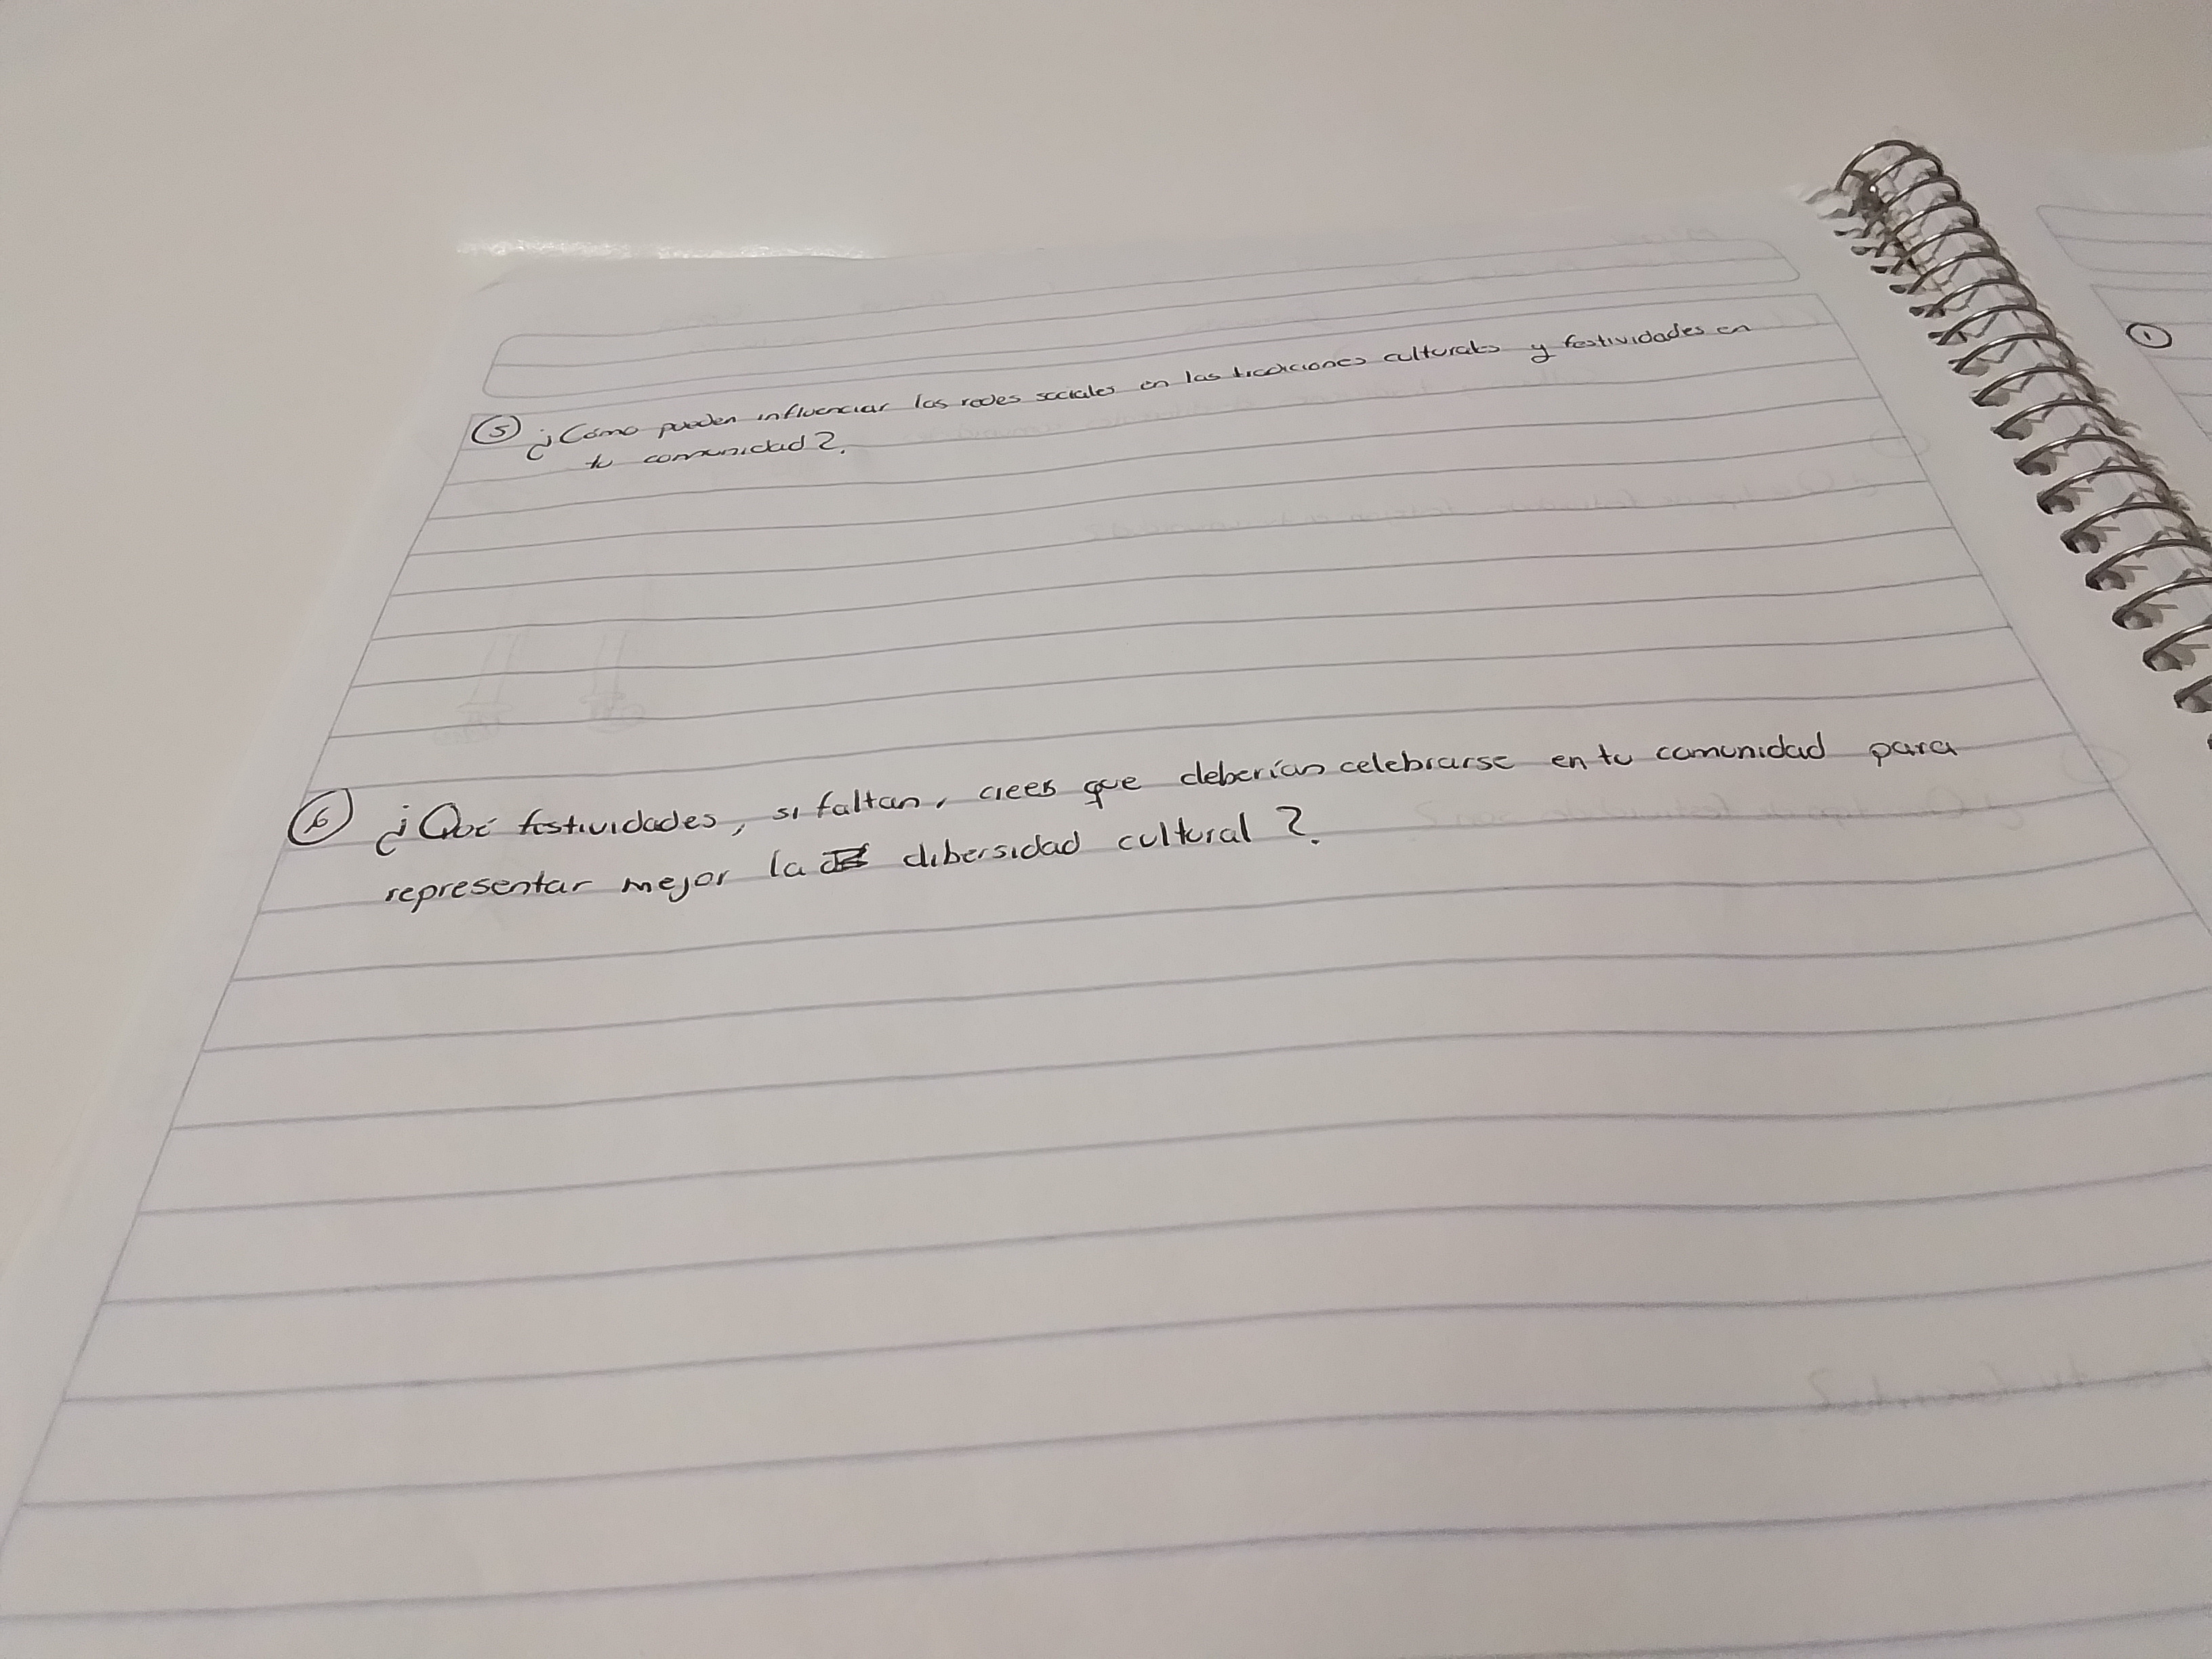 ⑤ ¿Cómo pueden influenciar las redes sociales en las tradiciones culturales y festividades en
tu comunidad?.
⑥ ¿Qué festividades, si faltan, crees que deberían celebrarse en tu comunidad para
representar mejor la dibersidad cultural?.
①